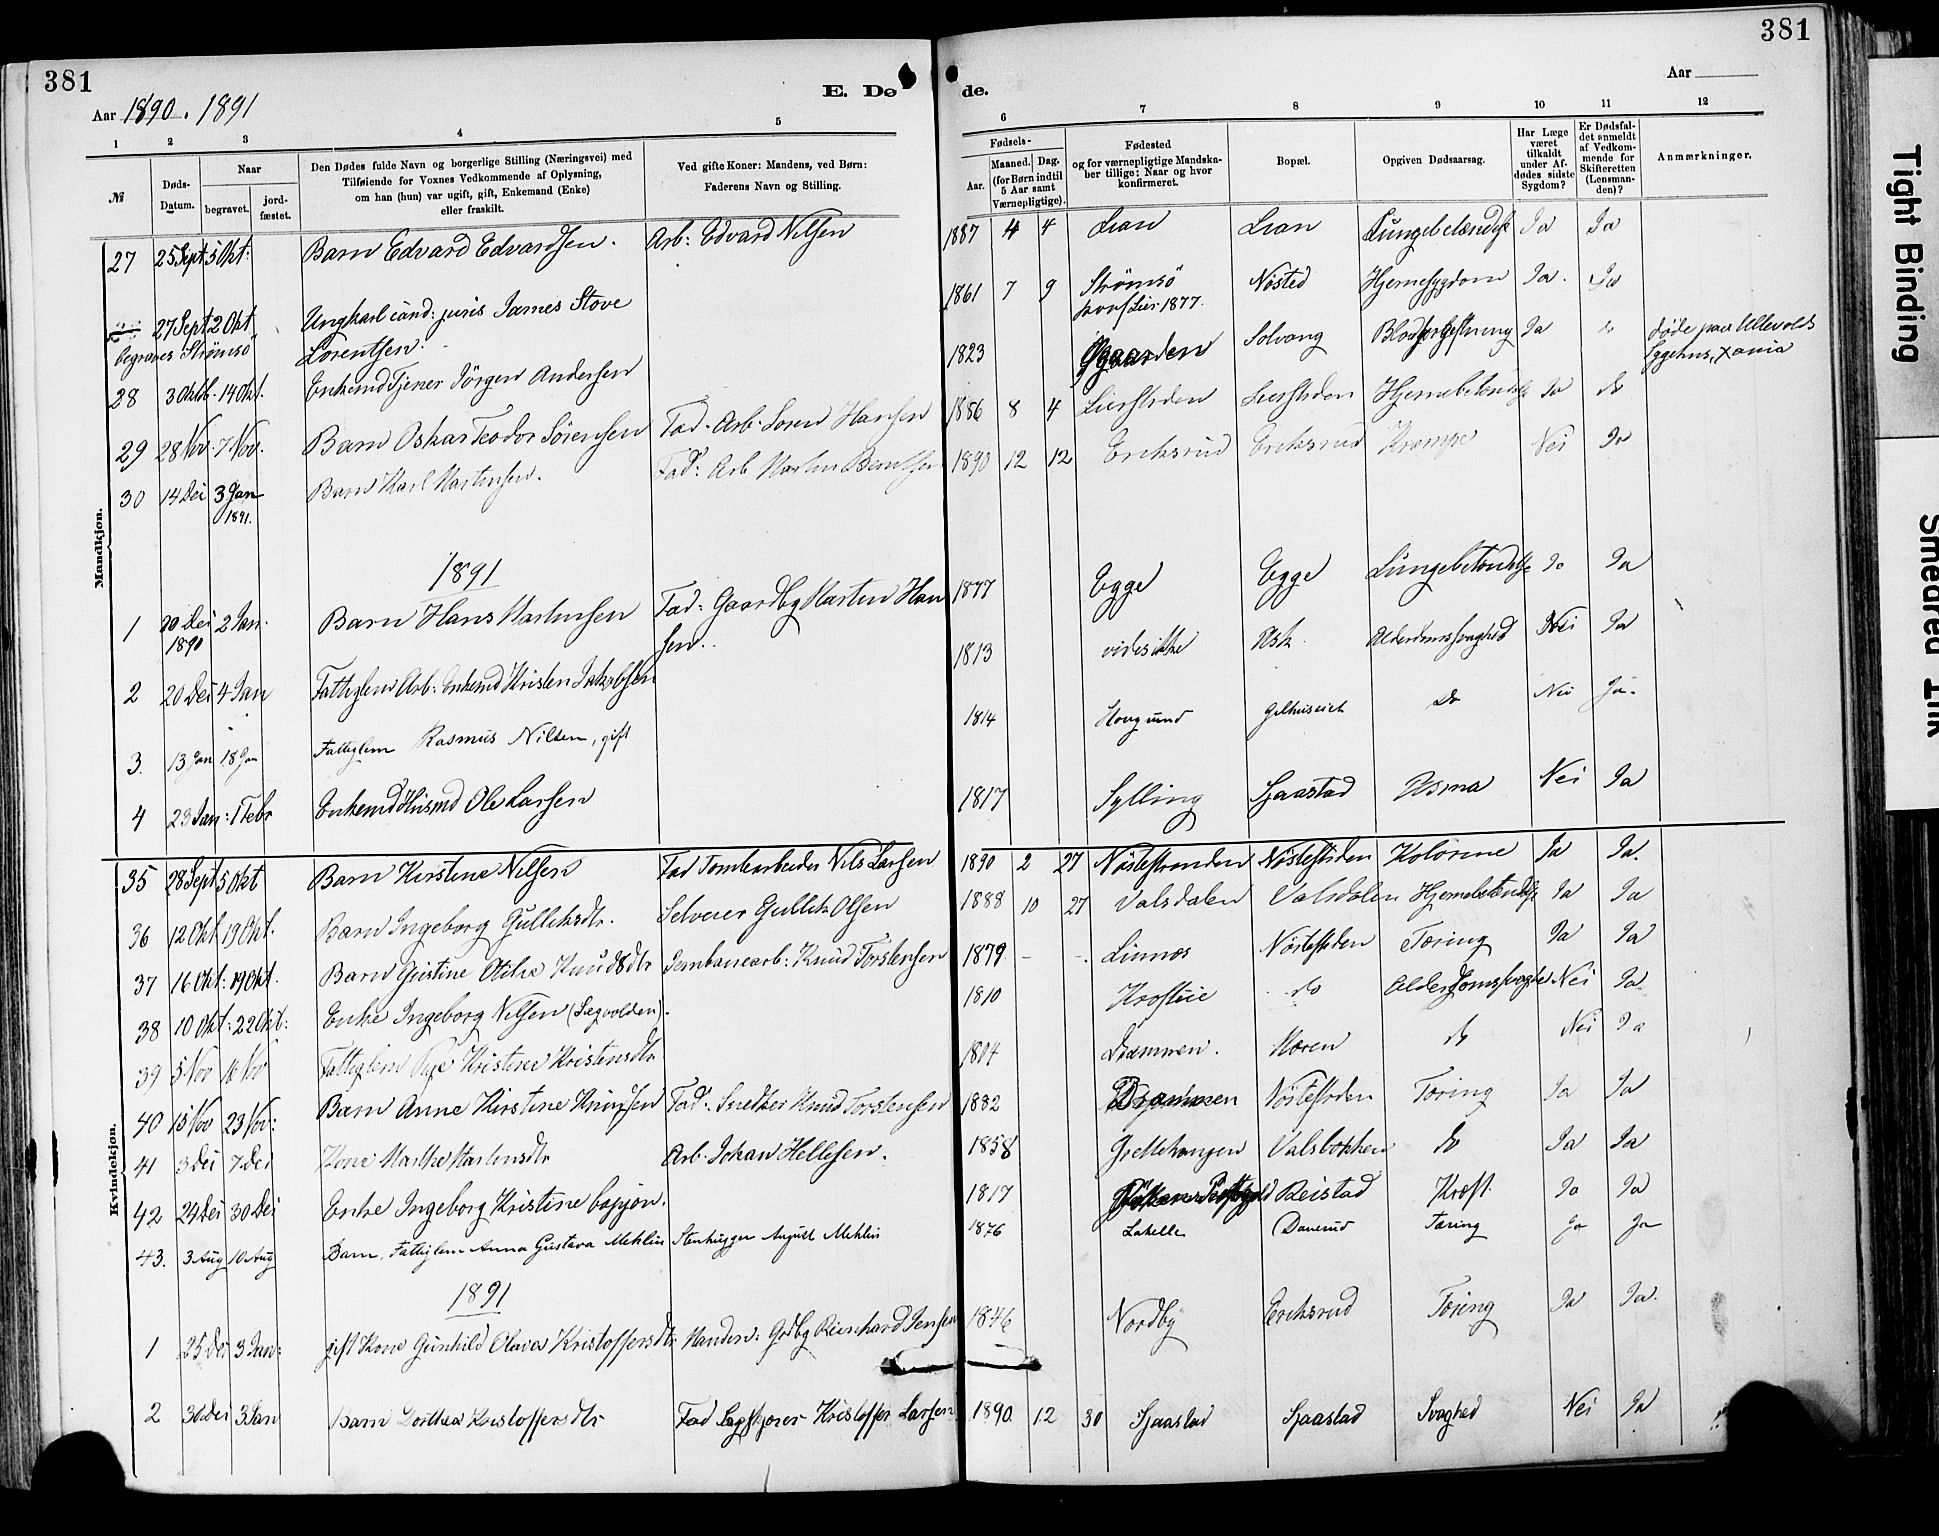 381
Aar 1890. 1891
E. Dø
1 2 3 4 5
№
Døds-Datum.
Naar
begravet.
jord-fæstet.
Den Dødes fulde Navn og borgerlige Stilling (Næringsvei) med
Tilføiende for Voxnes Vedkommende af Oplysning,
om han (hun) var ugift, gift, Enkemand (Enke)
eller fraskilt.
Ved gifte Koner: Mandens, ved Børn:
Faderens Navn og Stilling.
Mandkjøn.
27 25 Sept 5 Okt: Barn Edvard Edvardsen. Arb: Edvard Nilsen
27 Sept 2 Okt Ungkarl cand: juris James Stove
begraves Strømsø Lorentsen.
28 3 Oktb. 14 Okt. Enkemd Tjener Jörgen Andersen
29 28 Nov. 7 Nov. Barn Oskar Teodor Sörensen Fad. Arb. Soren Hansen
30 14 Dei 3 Jan 1891. Barn Karl Martinsen. Fad: Arb Martin Berntsen
1891
1 20 Dei 1890 2 Jan. Barn Hans Martinsen Fad: Gaardbg Marten Han
sen.
2 20 Dei 4 Jan Fattiglem Arb: Enkemd Kristen Jakobsen
3. 13 Jan 18 Jan Fattiglem Rasmus Nilsen, gift
4 23 Jan: 1 Febr Enkemd Husmd Ole Larsen
Kvindekjøn.
35 28 Sept 5 Okt Barn Kirstine Nilsen Fad Tomtearbeider Nils Larsen
36 12 Okt 19 Okt. Barn Ingeborg Gulliksdtr. Selveier Gullik Olsen
37 16 Okt: 19 Okt. Barn Gustine Otilie Knudsdtr Jernbanearb: Knud Torstensen
38 10 Okt: 22 Okt: Enke Ingeborg Nilsen (Lægvolden).
39 5 Nov 16 Nov Fattiglem Pige Kristine Kristensdtr
40 15 Nov 23 Nov: Barn Anne Kirstine Knudsen Fad: Snedker Knud Torstensen
41 3 Dei 7 Dei Kone Marthe Martinsdtr Arb. Johan Hellesen.
42 24 Dei 30 Dei Enke Ingeborg Kristine
43. 3 Aug 10 Aug Barn, Fattiglem Anna Gustava Mehlin Stenhugger August Mehlin
1891
1 25 Dei 3 Jan: gift Kone Gunhild Olava Kristoffersdtr Manden: Gdbg Reinhard Jensen
2 30 Dei 3 Jan Barn Dorthea Kristoffersdtr Fad Kristoffer Larsen
381
de.
Aar
6 7 8 9 10 11 12
Fødsels-
Aar.
Maaned. Dag.
(for Børn indtil
5 Aar samt
Værnepligtige).
Fødested
og for værnepligtige Mandska-
ber tillige: Naar og hvor
konfirmeret.
Bopæl.
Opgiven Dødsaarsag.
Har Læge
været
tilkaldt
under Af-
dødes sidste
Sygdom?
Er Dødsfal-
det anmeldt
af Vedkom-
mende for
Skifteretten
(Lensman-
den)?
Anmærkninger.
1887 4 4 Lian Lian Lungebetændelse Ja Ja
1861 7 9 Strømsö Nøsted Hjernesygdom Ja. Ja
konf Lier 1877.
1823 Solvang Blodforgiftning Ja do döde paa Ullevolds
Sygehus, Xania
1886 8 4 Lierstrden Lierstrden Hjernebetændelse Ja do
1890 12 12 Eriksrud Eriksrud Krampe Nei Ja
1877 Egge Egge Lungebetændelse Ja Ja
1813 vides ikke Ask Alderdomssvaghed Nei Ja
1814 Hougsund Gilhuseie Do Nei Ja.
1817 Sylling Sjaastad Asma Nei Ja
1890 2 27 Nöstestranden Nöstestrden Kolorine Ja Ja.
1888 10 27 Valsdalen Valsdalen Hjernebetændelse Ja Ja
1879 - - Linnæs Nöstestrden Tæring Ja Ja
1810 do Alderdomssvaghed Nei Ja
1804 Drammen. Moren do Nei Ja
1882 Drammen Nöstestrden Tæring Ja Ja
1858 Grettehaugen Valsbækken do Ja Ja
1817 Reistad Kræft Ja Ja
1876 Lahelle Danerud Tæring Ja Ja
1846 Nordby Eriksrud Tæring Ja Ja.
1890 12 30 Sjaastad Sjaastad Svaghed Nei Ja
Tight Binding
Smeared Ink